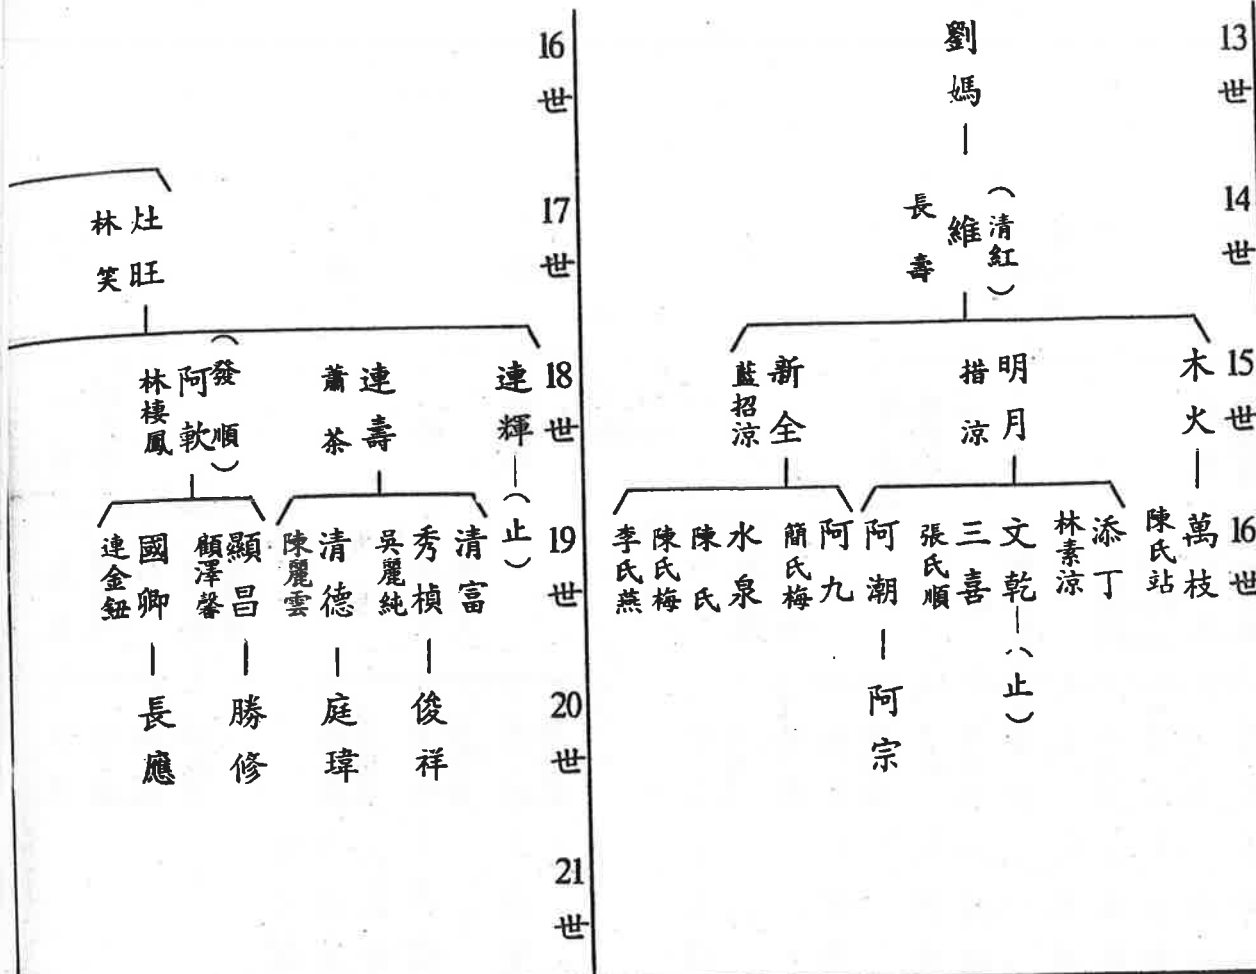 13世
劉媽
14世
(清紅)
維
長壽
15世
木火
明月
措涼
新全
藍招涼
16世
萬枝
陳氏站
添丁
林素涼
文乾
(止)
三喜
張氏順
阿潮
阿宗
阿九
簡氏梅
水泉
陳氏
陳氏梅
李氏燕
16世
17世
灶旺
林笑
18世
連輝
(止)
連壽
蕭茶
(發順)
阿軟
林棲鳳
19世
清富
秀楨
吳麗純
清德
陳麗雲
顯昌
顧澤馨
國卿
連金鈕
20世
俊祥
庭瑋
勝修
長應
21世